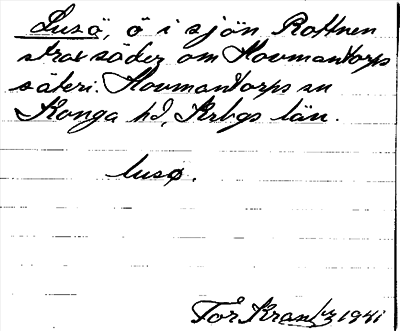 Lusö, ö i sjön Rottnen
strax söder om Hovmantorps
säteri. Hovmantorps sn
Konga hd, Krbgs län.
lusø.
Tor Krantz 1941